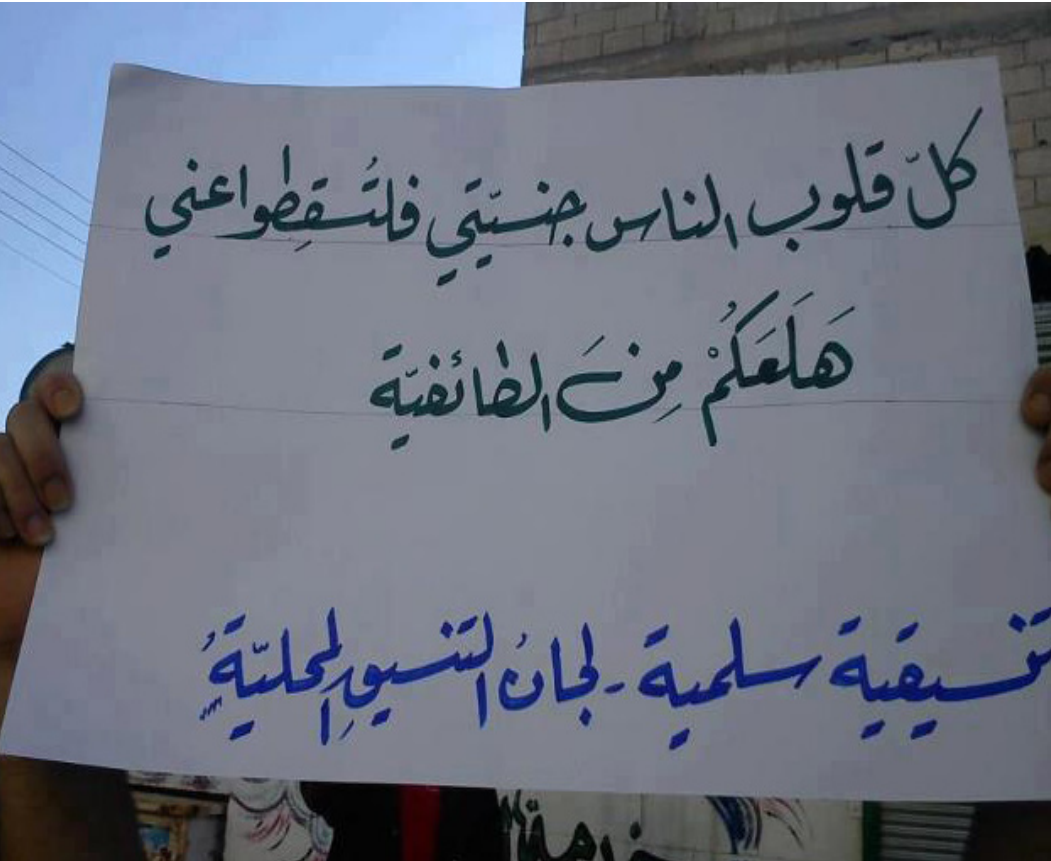 كلّ قلوب الناس جنسيّتي فلتُسقِطوا عني
هَلَعَكُمْ مِنَ الطائفيّة
تنسيقية سلمية - لجانُ التنسيقِ المحليّةُ